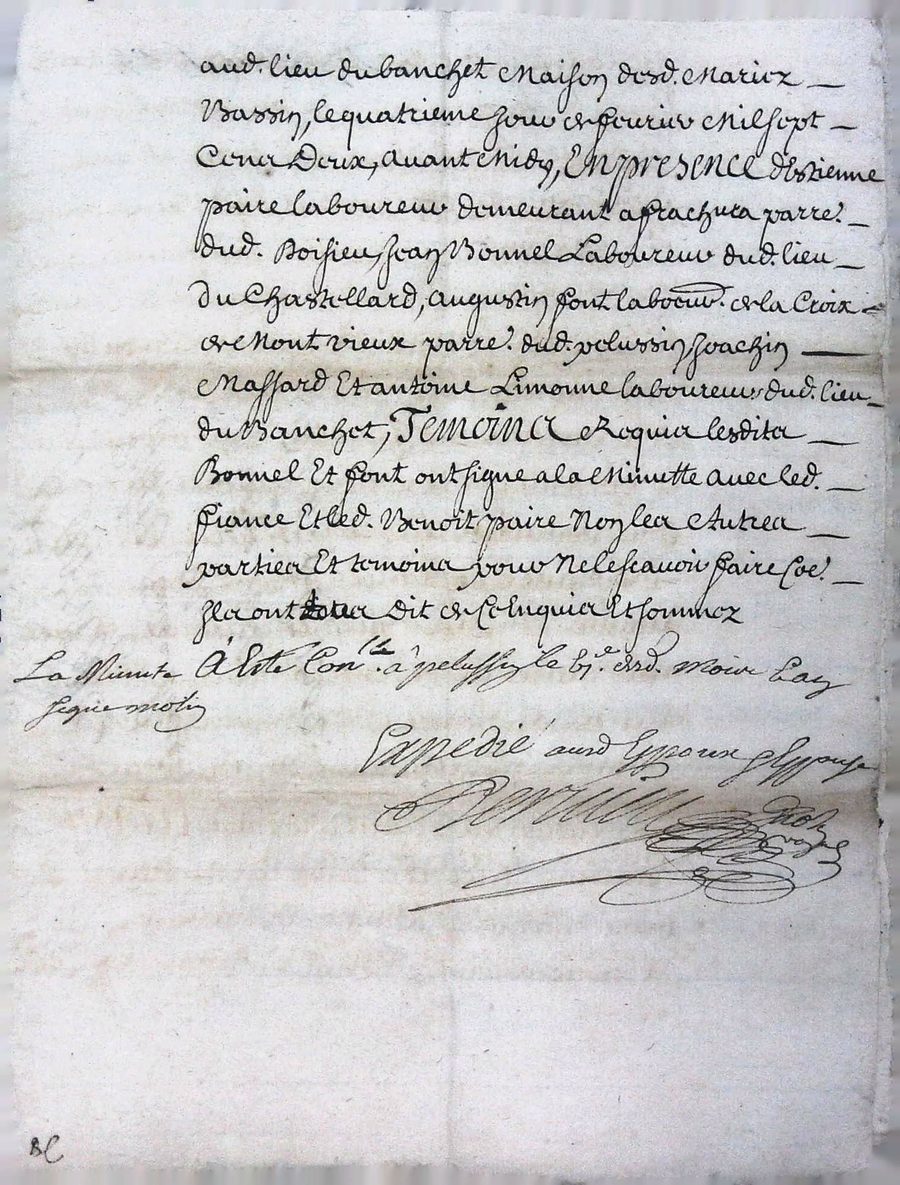 aud. lieu du banchet Maison desd. Mariez
Bassin, le quatrieme Jour de feurier Mil sept
Cens Deux, auant Midy, En presence d'Estienne
paire laboureur demeurant a frachura parre.
dud. Boisieu, Jean Bonnel Laboureur dud. lieu
Du Chastellard, augustin font laboeur. de la Croix
de Mont vieux parre. dud. pelussin, Joachin
Massard Et antoine Limonne laboureurs dud. lieu
du Banchet, Temoins Requis lesdits
Bonnel Et font ont signe a la Minutte auec led.
fiance Et led. Benoit paire Non les Autres
parties Et temoins pour Ne le scauoir faire Coe.
Ils ont dit de Ce Enquis Et sommez
La Minute A Esté Con.lle a pelussin le dud. Mois Lan
Signe
Expedié ausd Epoux